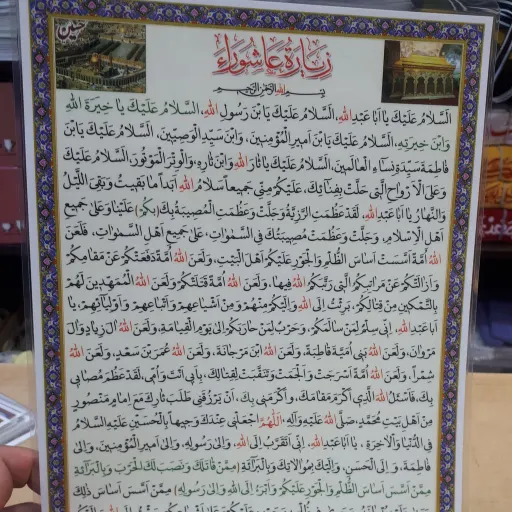 حسین
زیارة عاشوراء
بسم الله الرحمن الرحیم
اَلسَّلامُ عَلَیْكَ یا اَبا عَبْدِ اللهِ، اَلسَّلامُ عَلَیْكَ یَا بْنَ رَسُولِ اللهِ، اَلسَّلامُ عَلَیْكَ یا خِیَرَةَ اللهِ
وَابْنَ خِیَرَتِهِ، اَلسَّلامُ عَلَیْكَ یَا بْنَ اَمیرِ الْمُؤْمِنینَ، وَابْنَ سَیِّدِ الْوَصِیّینَ، اَلسَّلامُ عَلَیْكَ یَا بْنَ
فاطِمَةَ سَیِّدَةِ نِساءِ الْعالَمینَ، اَلسَّلامُ عَلَیْكَ یا ثارَ اللهِ وَابْنَ ثارِهِ، وَالْوِتْرَ الْمَوْتُورَ، اَلسَّلامُ عَلَیْكَ
وَعَلَى الْاَرْواحِ الَّتی حَلَّتْ بِفِنائِكَ، عَلَیْكُمْ مِنّی جَمیعاً سَلامُ اللهِ اَبَداً ما بَقیتُ وَبَقِیَ اللَّیْلُ
وَالنَّهارُ، یا اَبا عَبْدِ اللهِ، لَقَدْ عَظُمَتِ الرَّزِیَّةُ وَجَلَّتْ وَعَظُمَتِ الْمُصیبَةُ بِكَ (بِكُمْ) عَلَیْنا وَعَلى جَمیعِ
اَهْلِ الْاِسْلامِ، وَجَلَّتْ وَعَظُمَتْ مُصیبَتُكَ فِی السَّمٰواتِ، عَلى جَمیعِ اَهْلِ السَّمٰواتِ، فَلَعَنَ
اللهُ اُمَّةً اَسَّسَتْ اَساسَ الظُّلْمِ وَالْجَوْرِ عَلَیْكُمْ اَهْلَ الْبَیْتِ، وَلَعَنَ اللهُ اُمَّةً دَفَعَتْكُمْ عَنْ مَقامِكُمْ
وَاَزالَتْكُمْ عَنْ مَراتِبِكُمُ الَّتی رَتَّبَكُمُ اللهُ فیها، وَلَعَنَ اللهُ اُمَّةً قَتَلَتْكُمْ وَلَعَنَ اللهُ الْمُمَهِّدینَ لَهُمْ
بِالتَّمْكینِ مِنْ قِتالِكُمْ، بَرِئْتُ اِلَى اللهِ وَاِلَیْكُمْ مِنْهُمْ وَمِنْ اَشْیاعِهِمْ وَاَتْباعِهِمْ وَاَوْلِیائِهِمْ، یا
اَبا عَبْدِ اللهِ، اِنّی سِلْمٌ لِمَنْ سالَمَكُمْ، وَحَرْبٌ لِمَنْ حارَبَكُمْ اِلى یَوْمِ الْقِیامَةِ، وَلَعَنَ اللهُ آلَ زِیادٍ وَآلَ
مَرْوانَ، وَلَعَنَ اللهُ بَنی اُمَیَّةَ قاطِبَةً، وَلَعَنَ اللهُ ابْنَ مَرْجانَةَ، وَلَعَنَ اللهُ عُمَرَ بْنَ سَعْدٍ، وَلَعَنَ اللهُ
شِمْراً، وَلَعَنَ اللهُ اُمَّةً اَسْرَجَتْ وَاَلْجَمَتْ وَتَنَقَّبَتْ لِقِتالِكَ، بِاَبی اَنْتَ وَاُمّی، لَقَدْ عَظُمَ مُصابی
بِكَ، فَاَسْئَلُ اللهَ الَّذی اَكْرَمَ مَقامَكَ، وَاَكْرَمَنی بِكَ، اَنْ یَرْزُقَنی طَلَبَ ثارِكَ مَعَ اِمامٍ مَنْصُورٍ
مِنْ اَهْلِ بَیْتِ مُحَمَّدٍ، صَلَّى اللهُ عَلَیْهِ وَآلِهِ، اَللّهُمَّ اجْعَلْنی عِنْدَكَ وَجیهاً بِالْحُسَیْنِ عَلَیْهِ السَّلامُ
فِی الدُّنْیا وَالْآخِرَةِ، یا اَبا عَبْدِ اللهِ، اِنّی اَتَقَرَّبُ اِلَى اللهِ، وَاِلى رَسُولِهِ، وَاِلى اَمیرِ الْمُؤْمِنینَ، وَاِلى
فاطِمَةَ، وَاِلَى الْحَسَنِ، وَاِلَیْكَ بِمُوالاتِكَ، وَبِالْبَرائَةِ (مِمَّنْ قاتَلَكَ وَنَصَبَ لَكَ الْحَرْبَ، وَبِالْبَرائَةِ
مِمَّنْ اَسَّسَ اَساسَ الظُّلْمِ وَالْجَوْرِ عَلَیْكُمْ وَاَبْرَءُ اِلَى اللهِ وَاِلى رَسُولِهِ) مِمَّنْ اَسَّسَ اَساسَ ذلِكَ